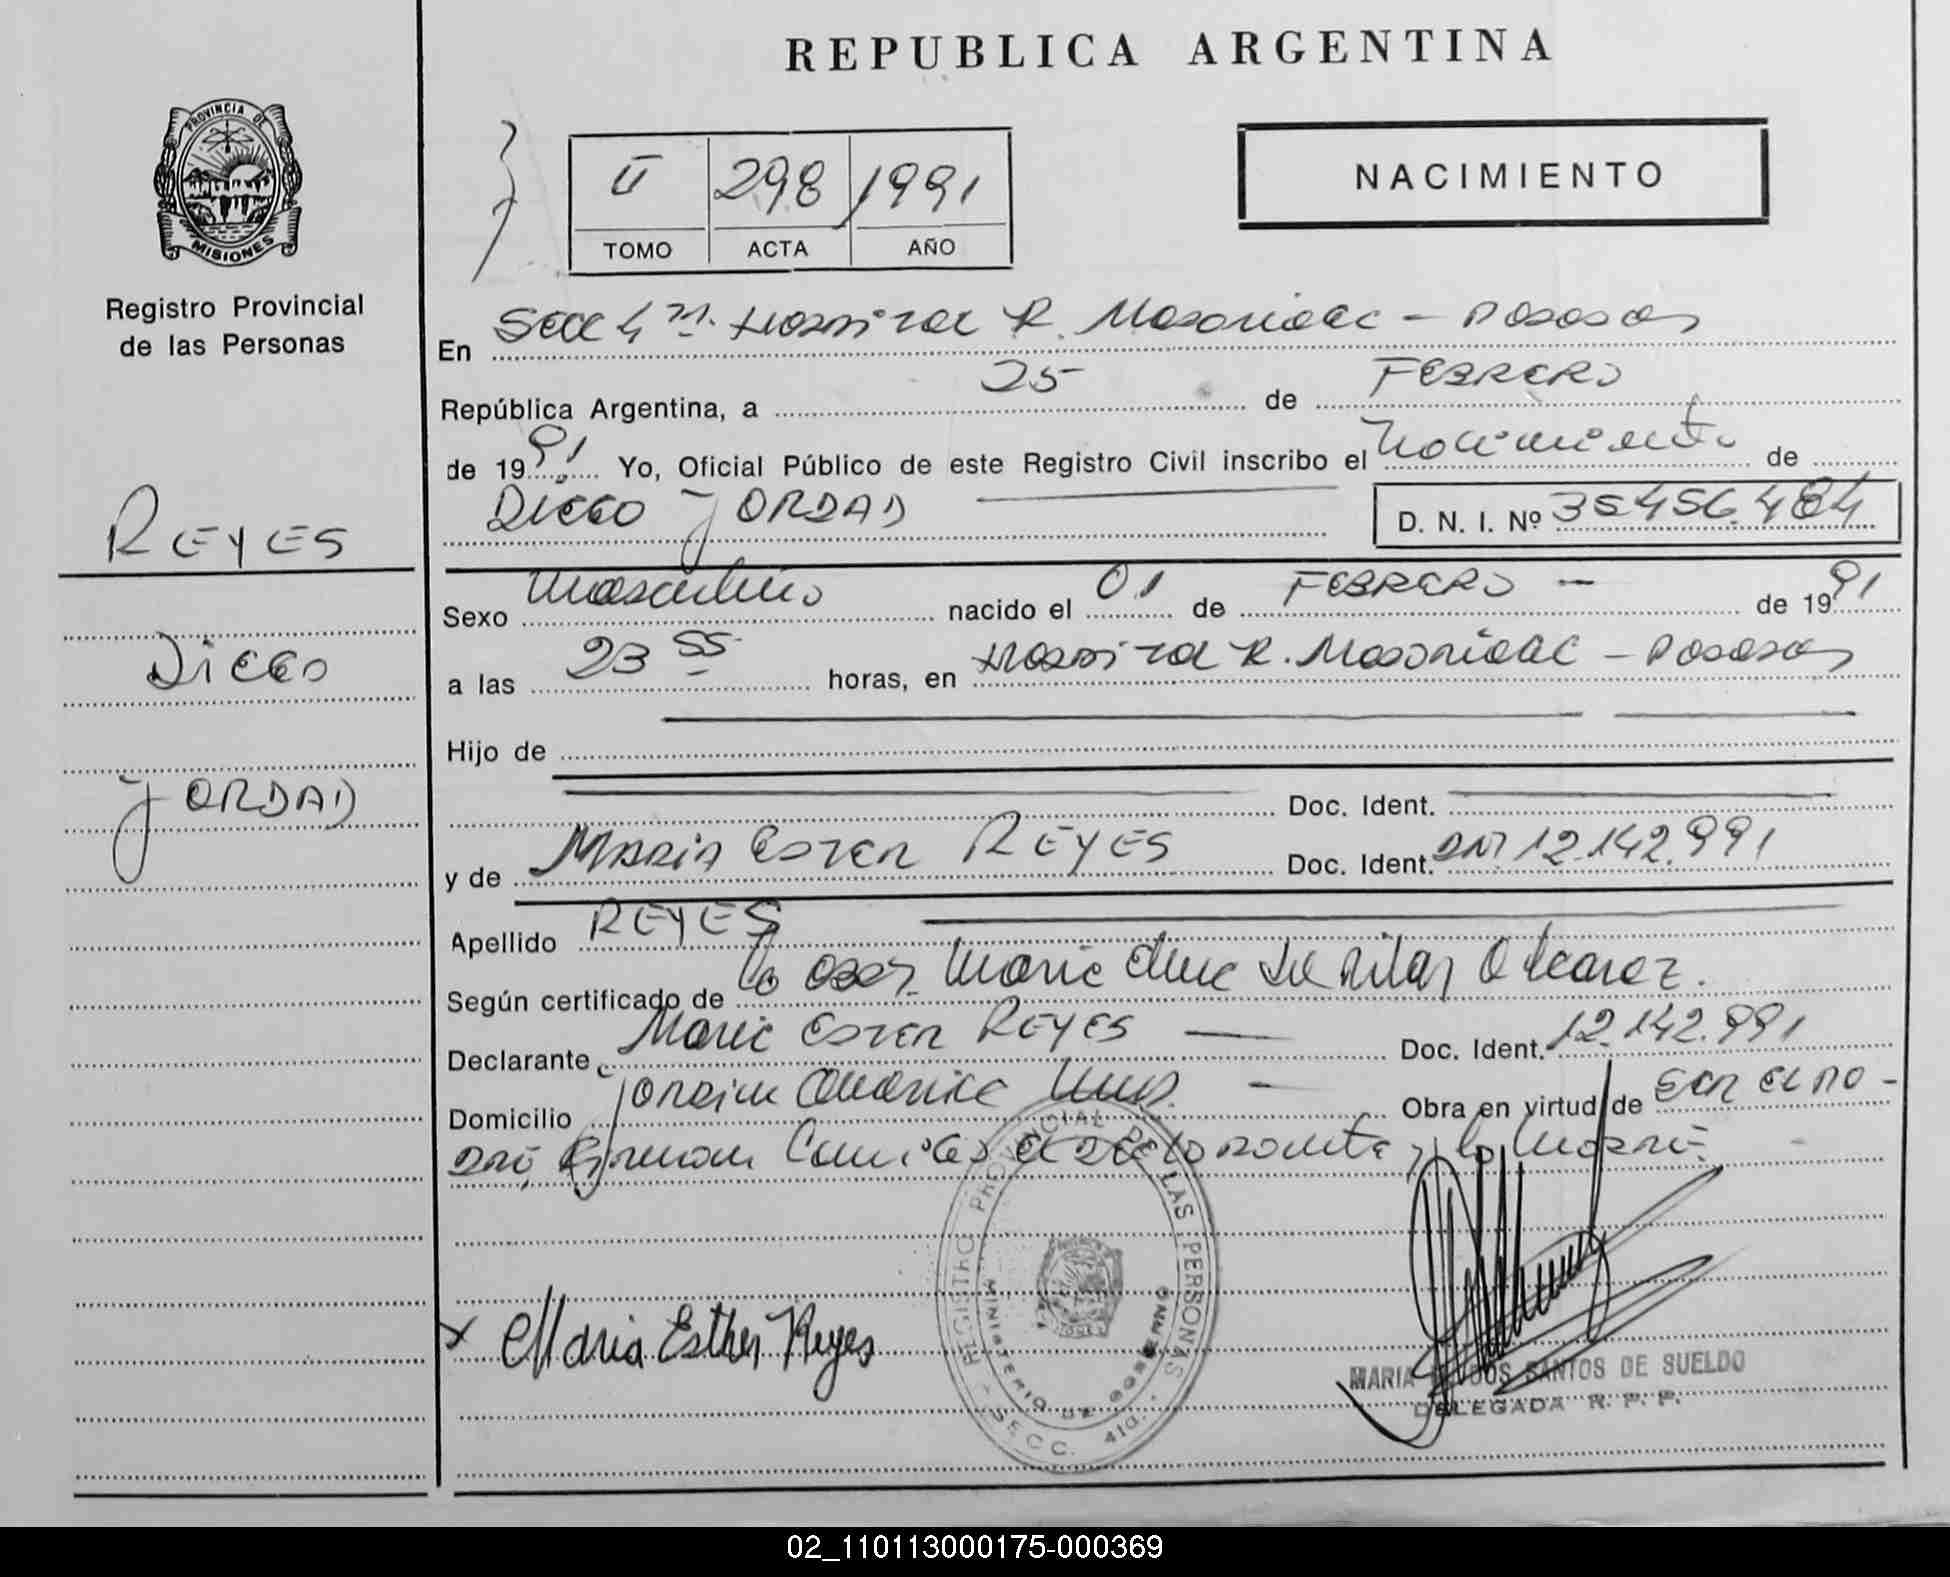 REPUBLICA ARGENTINA
PROVINCIA DE
MISIONES
Registro Provincial
de las Personas
II 298 1991
TOMO ACTA AÑO
NACIMIENTO
En Secc 4ta. Hospital R. Madariaga - Posadas
República Argentina, a 25 de FEBRERO
de 1991 Yo, Oficial Público de este Registro Civil inscribo el Nacimiento de
DIEGO JORDAD D. N. I. Nº 35.456.484
REYES
DIEGO
JORDAD
Sexo Masculino nacido el 01 de FEBRERO - de 1991
a las 23 55 horas, en Hospital R. Madariaga - Posadas
Hijo de
Doc. Ident.
y de Maria Ester REYES Doc. Ident. DNI 12.142.991
Apellido REYES
Según certificado de la Obst. Maria del Pilar
Declarante Maria Ester REYES Doc. Ident. 12.142.991
Domicilio Jardin America Mnes. - Obra en virtud de ser el pro-
la madre
x Maria Esther Reyes
REGISTRO PROVINCIAL DE LAS PERSONAS
MINISTERIO DE GOBIERNO
SECC. 4ta.
MARIA DOS SANTOS DE SUELDO
DELEGADA R. P. P.
02_110113000175-000369